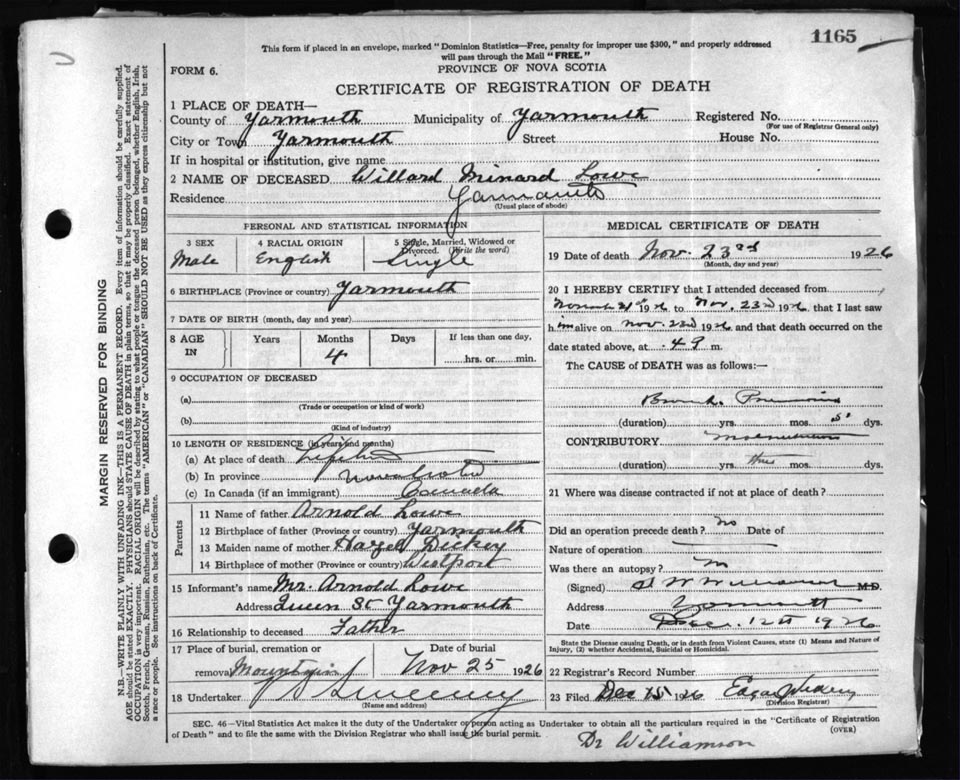 1165
This form if placed in an envelope, marked "Dominion Statistics—Free, penalty for improper use $300," and properly addressed
will pass through the Mail "FREE."
FORM 6.
PROVINCE OF NOVA SCOTIA
CERTIFICATE OF REGISTRATION OF DEATH
1 PLACE OF DEATH—
County of Yarmouth Municipality of Yarmouth Registered No.
(For use of Registrar General only)
City or Town Yarmouth Street House No.
If in hospital or institution, give name
2 NAME OF DECEASED Willard Minard Lowe
Residence Yarmouth
(Usual place of abode)
PERSONAL AND STATISTICAL INFORMATION
3 SEX 4 RACIAL ORIGIN 5 Single, Married, Widowed or
Divorced. (Write the word)
Male English Single
6 BIRTHPLACE (Province or country) Yarmouth
7 DATE OF BIRTH (month, day and year)
8 AGE Years Months Days If less than one day,
IN 4 hrs. or min.
9 OCCUPATION OF DECEASED
(a)
(Trade or occupation or kind of work)
(b)
(Kind of industry)
10 LENGTH OF RESIDENCE (in years and months)
(a) At place of death Lifetime
(b) In province Nova Scotia
(c) In Canada (if an immigrant) Canada
Parents
11 Name of father Arnold Lowe
12 Birthplace of father (Province or country) Yarmouth
13 Maiden name of mother Hazel Dickey
14 Birthplace of mother (Province or country) Westport
15 Informant's name Mr. Arnold Lowe
Address Queen St Yarmouth
16 Relationship to deceased Father
17 Place of burial, cremation or Date of burial
removal Mountain Nov 25 1926
18 Undertaker Sweeney
(Name and address)
MEDICAL CERTIFICATE OF DEATH
19 Date of death Nov. 23rd 1926
(Month, day and year)
20 I HEREBY CERTIFY that I attended deceased from
1926 to Nov. 23rd 1926, that I last saw
him alive on Nov. 1926, and that death occurred on
date stated above, at 4 m.
The CAUSE of DEATH was as follows:—
Broncho Pneumonia
(duration) yrs. mos. 5 dys.
CONTRIBUTORY Malnutrition
(duration) yrs. three mos. dys.
21 Where was disease contracted if not at place of death?
Did an operation precede death? no Date of
Nature of operation
Was there an autopsy? no
(Signed) Williamson M.D.
Address Yarmouth
Date Dec. 12th 1926
State the Disease causing Death, or in death from Violent Causes, state (1) Means and Nature of
Injury, (2) whether Accidental, Suicidal or Homicidal.
22 Registrar's Record Number
23 Filed Dec 15 1926 Edgar
(Division Registrar)
SEC. 46—Vital Statistics Act makes it the duty of the Undertaker or person acting as Undertaker to obtain all the particulars required in the "Certificate of Registration
of Death" and to file the same with the Division Registrar who shall issue the burial permit.
(OVER)
Dr Williamson
MARGIN RESERVED FOR BINDING
N.B.—WRITE PLAINLY WITH UNFADING INK—THIS IS A PERMANENT RECORD. Every item of information should be carefully supplied.
AGE should be stated EXACTLY. PHYSICIANS should STATE CAUSE OF DEATH in plain terms, so that it may be properly classified. Exact statement of
OCCUPATION is very important. RACIAL ORIGIN will be described by stating to what people or tongue the deceased person belonged, whether English, Irish,
Scotch, French, German, Russian, Ruthenian, etc. The terms "AMERICAN" or "CANADIAN" SHOULD NOT BE USED as they express citizenship but not
a race or people. See instructions on back of Certificate.